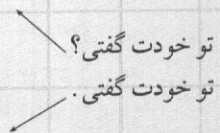 تو خودت گفتی؟
تو خودت گفتی.